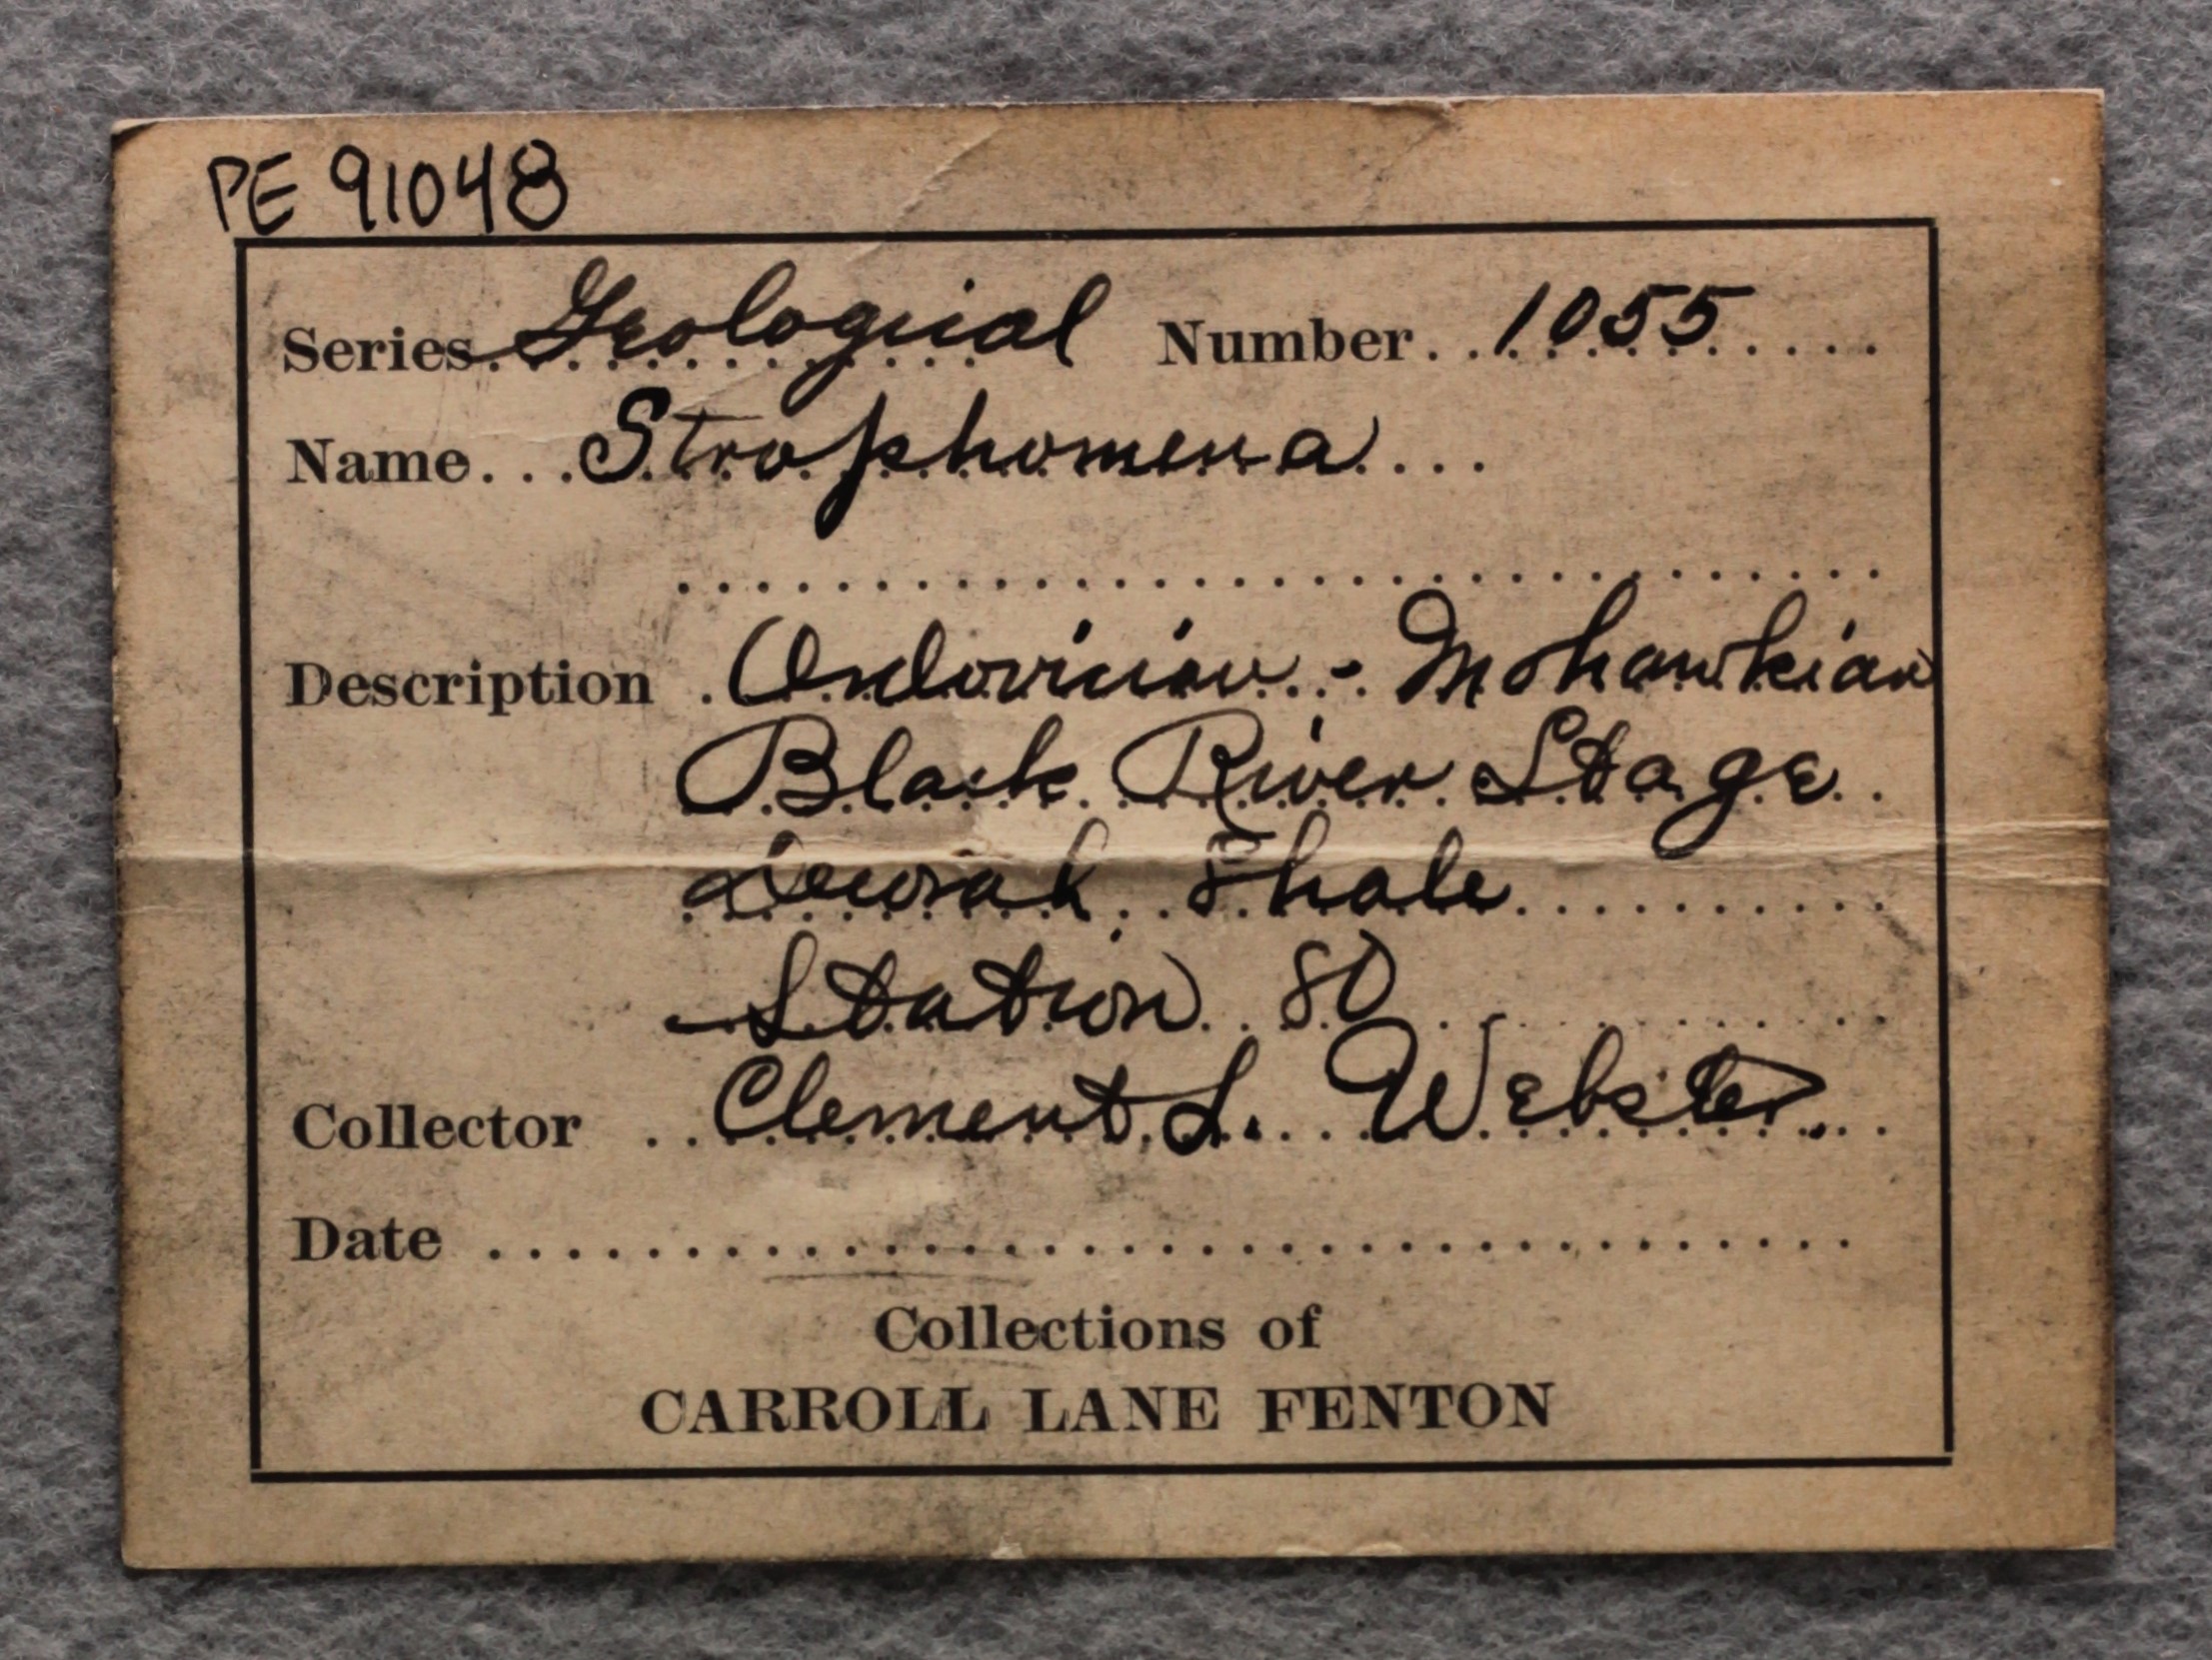 PE 91048
Series Geological Number 1055
Name Strophomena
Description Ordovician - Mohawkian
Black River Stage
Decorah Shale
Station 80
Collector Clement L. Webster
Date
Collections of
CARROLL LANE FENTON